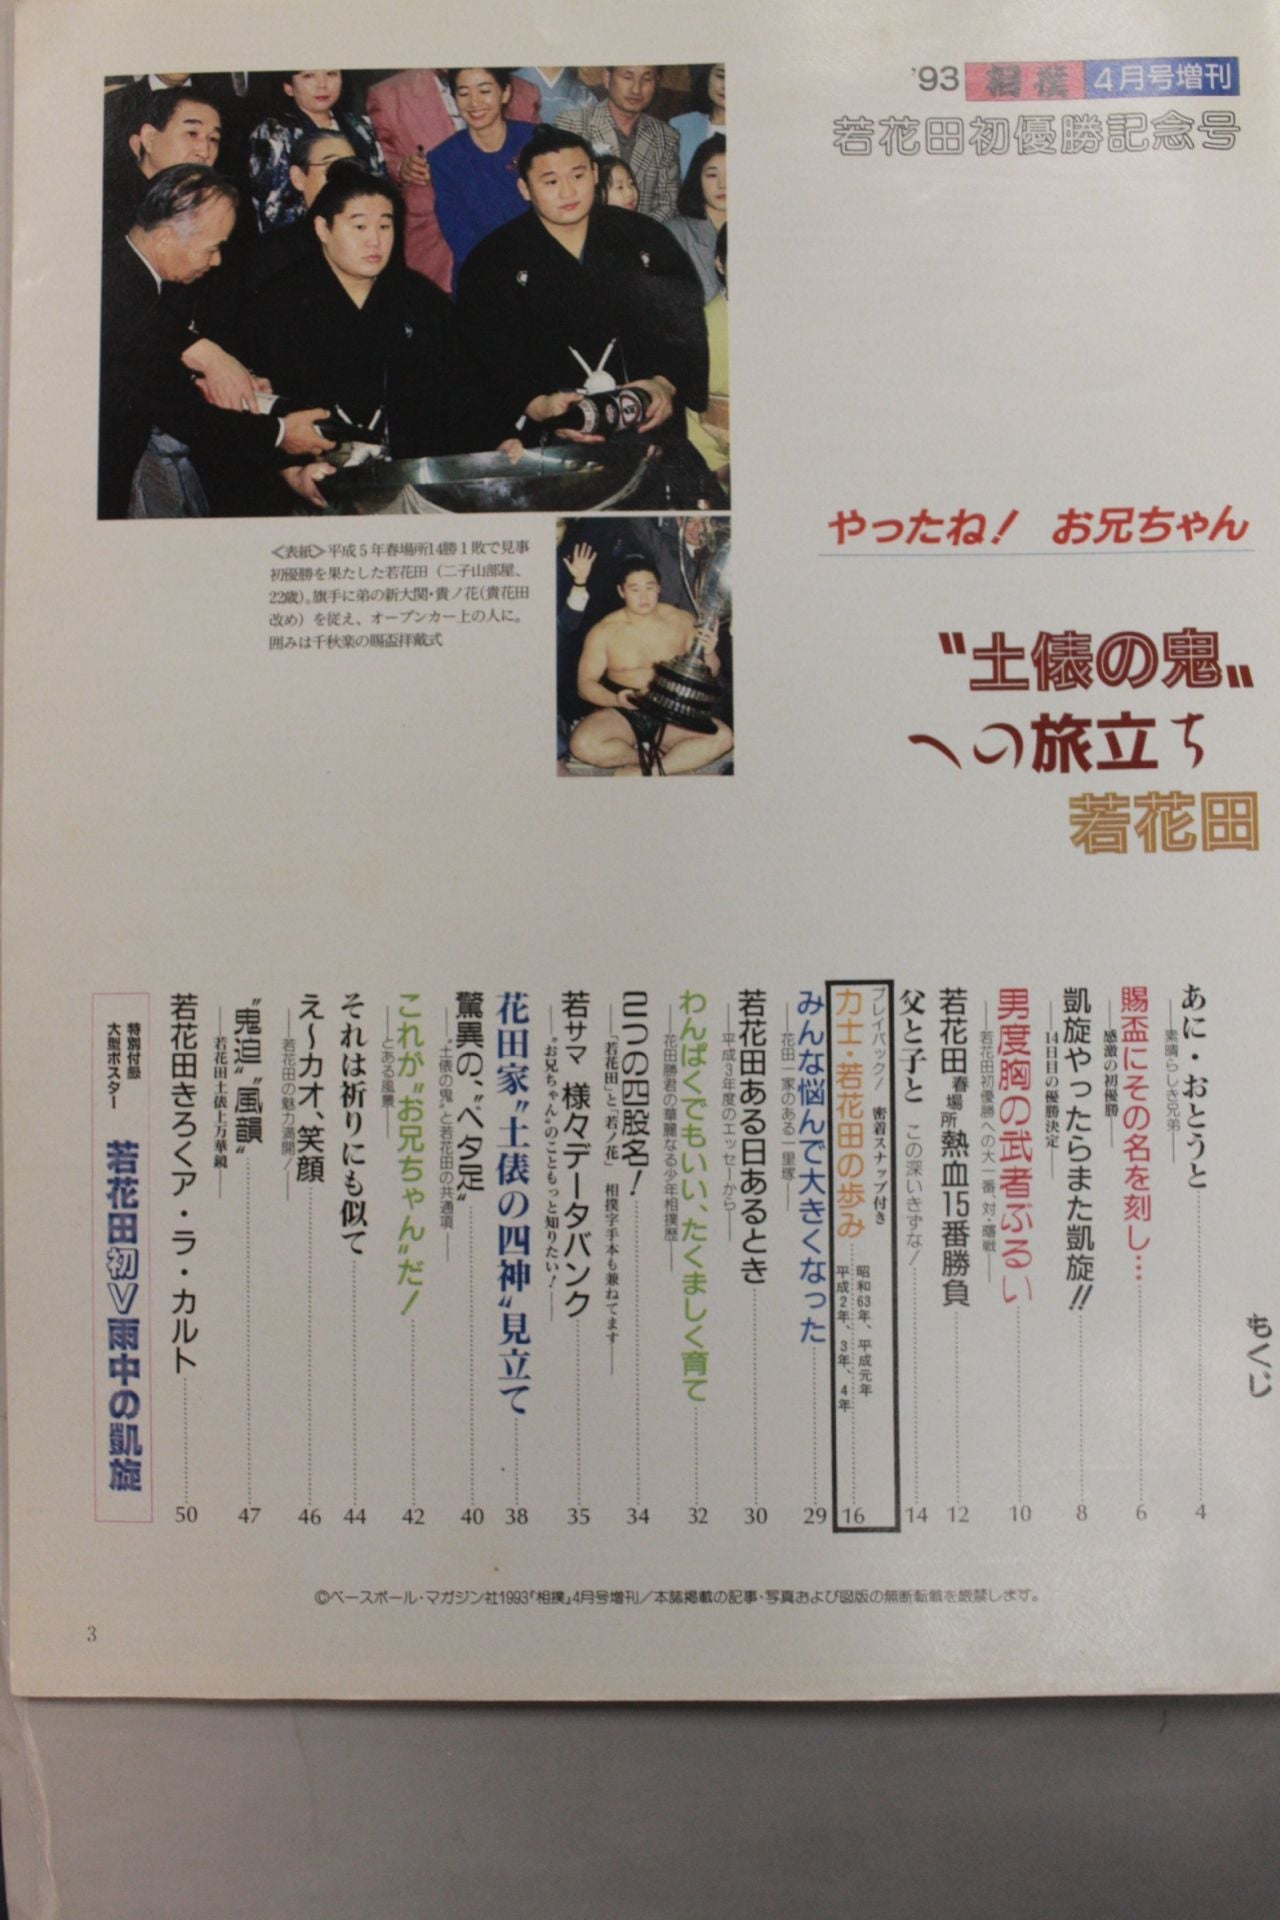 '93 相撲 4月号増刊
若花田初優勝記念号
やったね! お兄ちゃん
〝土俵の鬼〟
への旅立ち
若花田
<表紙>平成5年春場所14勝1敗で見事
初優勝を果たした若花田(二子山部屋、
22歳)。旗手に弟の新大関・貴ノ花(貴花田
改め)を従え、オープンカー上の人に。
囲みは千秋楽の賜盃拝戴式
もくじ
あに・おとうと 4
──素晴らしき兄弟──
賜盃にその名を刻し… 6
──感激の初優勝──
凱旋やったらまた凱旋!! 8
──14日目の優勝決定──
男度胸の武者ぶるい 10
──若花田初優勝への大一番、対・曙戦──
若花田 春場所 熱血15番勝負 12
父と子と この深いきずな! 14
プレイバック! 密着スナップ付き
力士・若花田の歩み 昭和63年、平成元年 平成2年、3年、4年 16
みんな悩んで大きくなった 29
──花田一家のある一里塚──
若花田ある日あるとき 30
──平成3年度のエッセーから──
わんぱくでもいい、たくましく育て 32
──花田勝君の華麗なる少年相撲歴──
2つの四股名! 34
──「若花田」と「若ノ花」 相撲字手本も兼ねてます──
若サマ 様々データバンク 35
──〝お兄ちゃん〟のこともっと知りたい!──
花田家〝土俵の四神〟見立て 38
驚異の、〝ベタ足〟 40
──〝土俵の鬼〟と若花田の共通項──
これが〝お兄ちゃん〟だ! 42
──とある風景──
それは祈りにも似て 44
え〜カオ、笑顔 46
──若花田の魅力満開!──
〝鬼迫〟〝風韻〟 47
──若花田土俵上万華鏡──
若花田きろくア・ラ・カルト 50
特別付録
大型ポスター 若花田初V雨中の凱旋
©ベースボール・マガジン社1993「相撲」4月号増刊/本誌掲載の記事・写真および図版の無断転載を厳禁します。
3